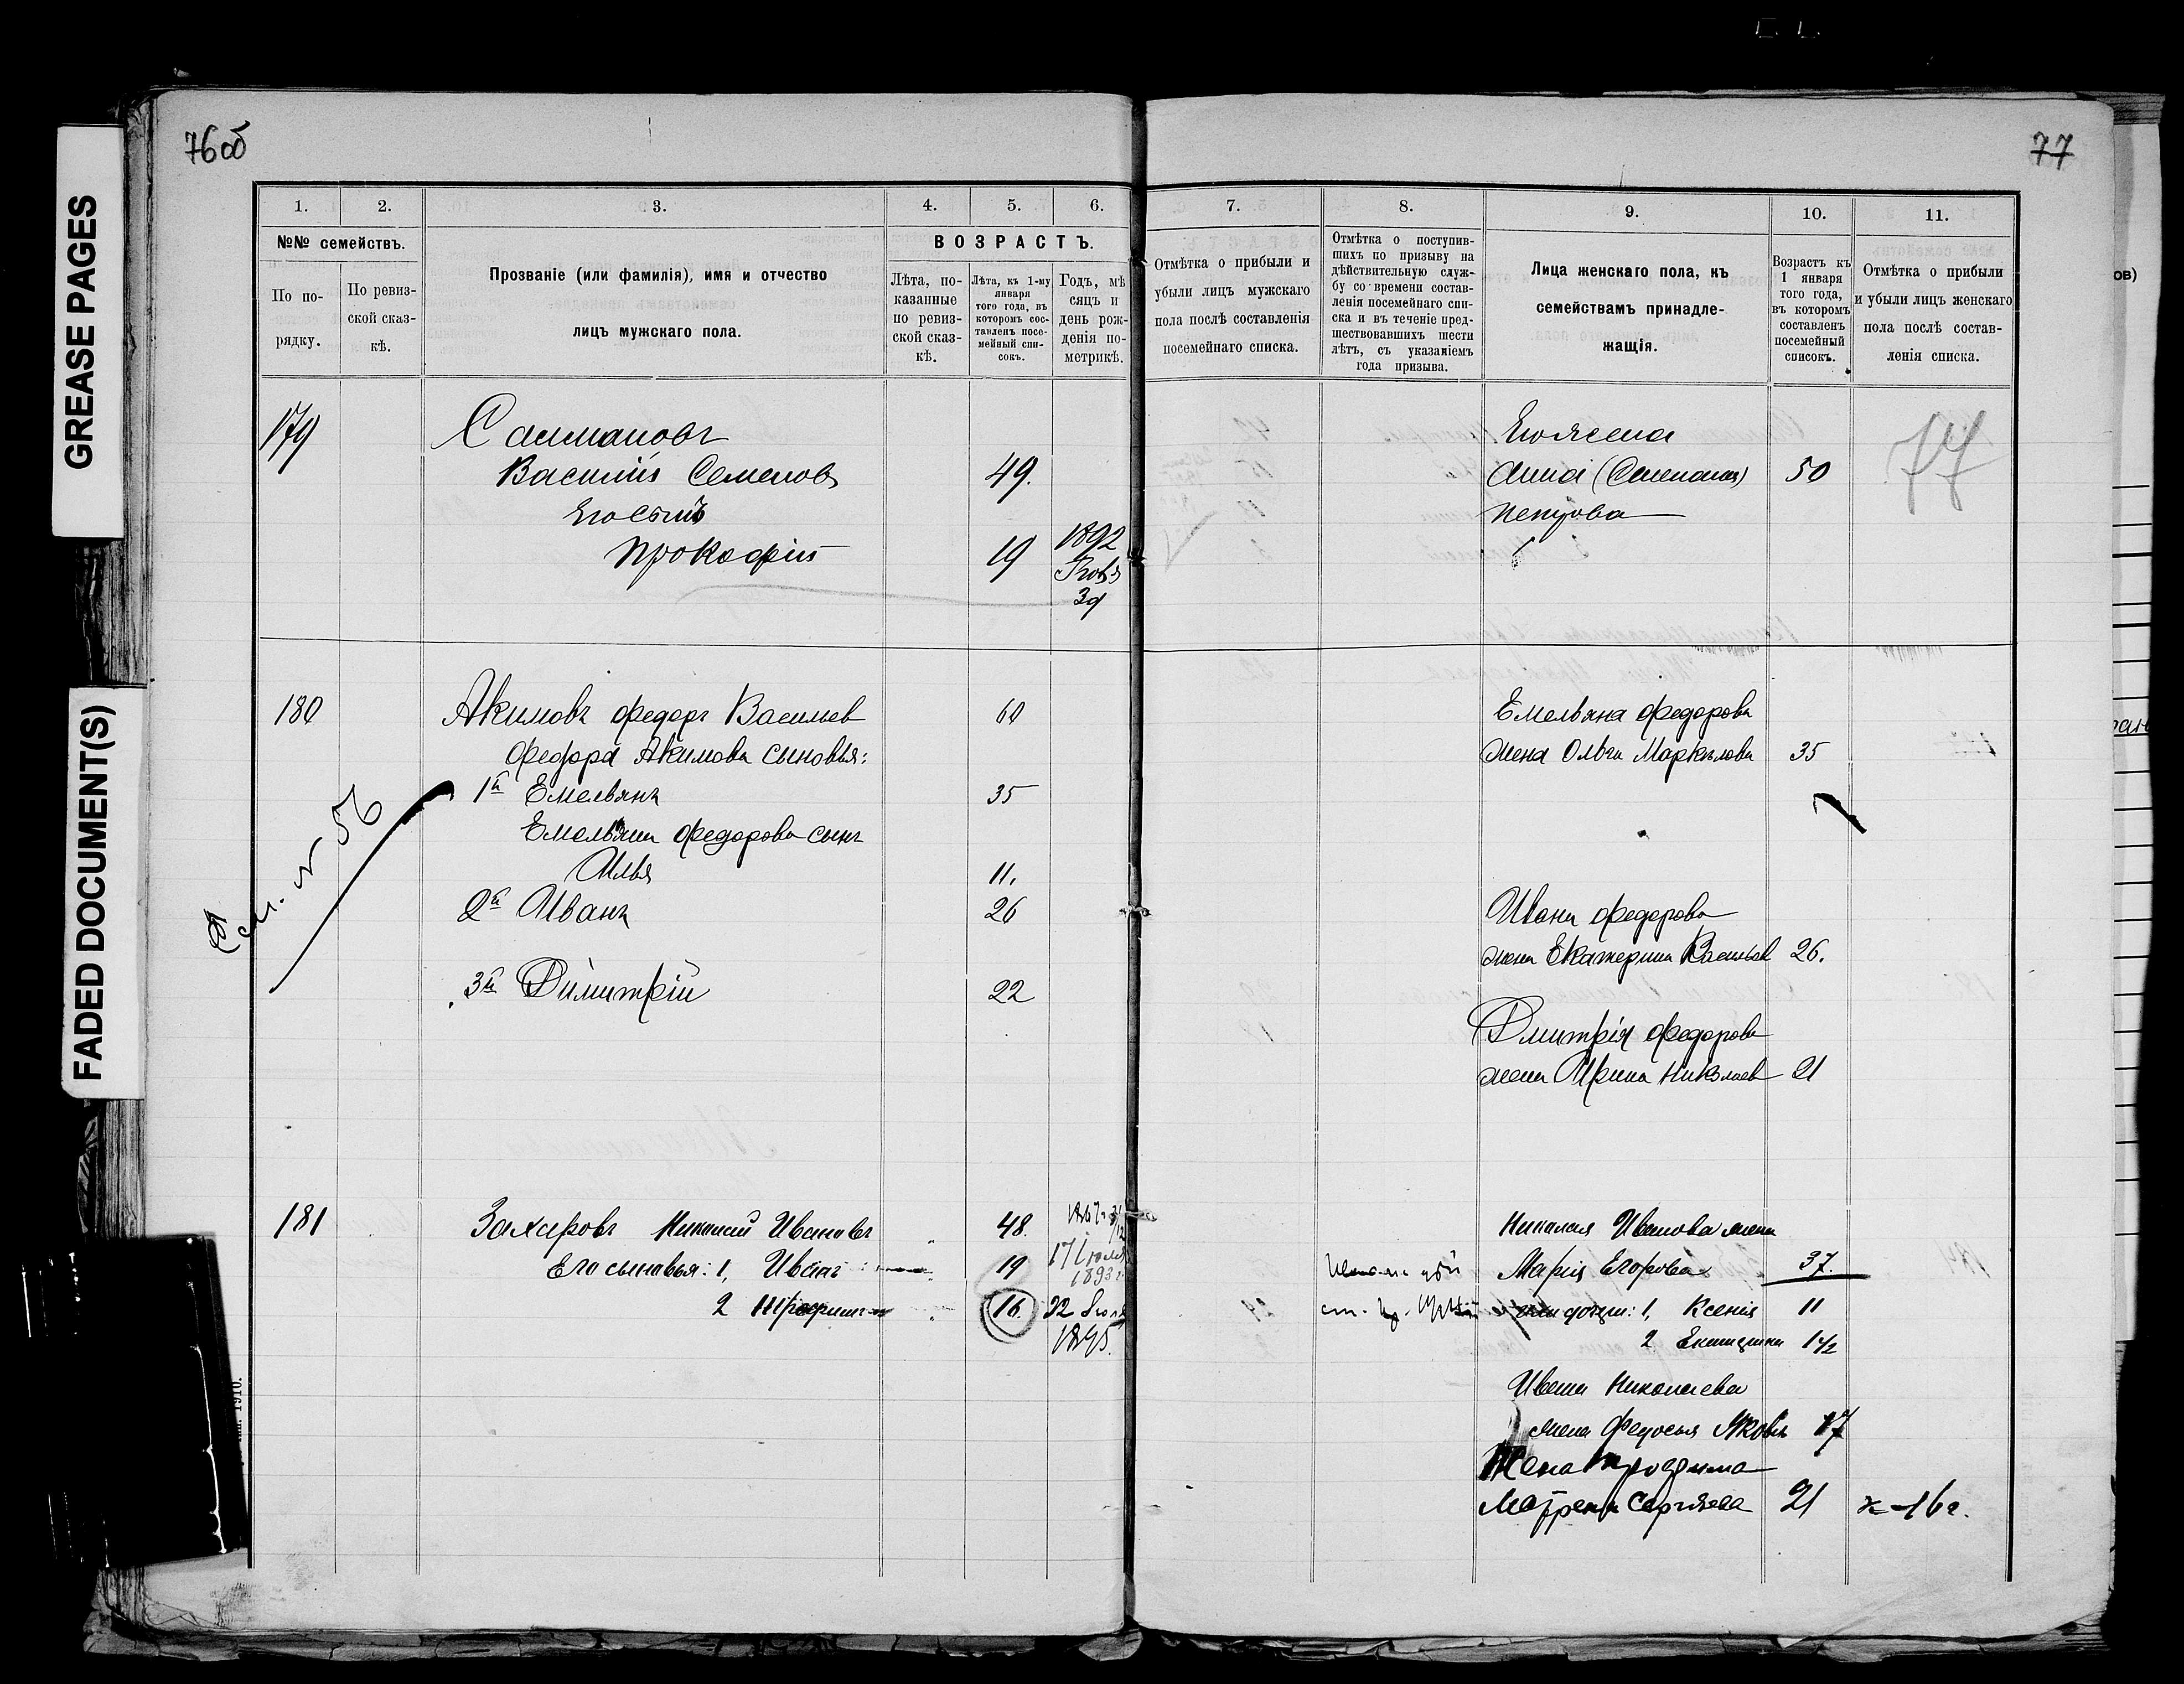 GREASE PAGES
FADED DOCUMENT(S)
76об
77
1.
2.
3.
4.
5.
6.
7.
8.
9.
10.
11.
№№ семействъ.
По порядку.
По ревизской сказкѣ.
Прозваніе (или фамилія), имя и отчество
лицъ мужскаго пола.
ВОЗРАСТЪ.
Лѣта, показанные по ревизской сказкѣ.
Лѣта, къ 1-му января того года, въ которомъ составленъ посемейный списокъ.
Годъ, мѣсяцъ и день рожденія по метрикѣ.
Отмѣтка о прибыли и убыли лицъ мужскаго пола послѣ составленія посемейнаго списка.
Отмѣтка о поступившихъ по призыву на дѣйствительную службу со времени составленія посемейнаго списка и въ теченіе предшествовавшихъ шести лѣтъ, съ указаніемъ года призыва.
Лица женскаго пола, къ
семействамъ принадлежащія.
Возрастъ къ 1 января того года, въ которомъ составленъ посемейный списокъ.
Отмѣтка о прибыли и убыли лицъ женскаго пола послѣ составленія списка.
179
Василій Семеновъ 49.
Его сынъ
Прокофій 19 1892
Его жена
Анна
50
Петрова
77
180
Акимовъ Федоръ Васильев 60
Федора Акимова сыновья:
1й Емельянъ 35
Емельяна Федорова сынъ
Илья 11.
2й Иванъ 26
3й Димитрій 22
См. № 56
Емельяна Федорова
жена Ольга Маркелова 35
Ивана Федорова
жена Екатерина Васильев 26.
Дмитрія Федорова
жена Ирина Николаев 21
181
Захаровъ Николай Ивановъ 48.
Его сыновья: 1, Иванъ 19 17 Іюля 1893 г
2 Трофимъ 16. 22 1895.
Николая Иванова жена
Марія Егорова 37.
дочери: 1, Ксенія 11
2 Екатерина 1½
Ивана Николаева
жена Федосья Яковл 17
Жена Трофима
Матрена Сергѣева 21
1910.